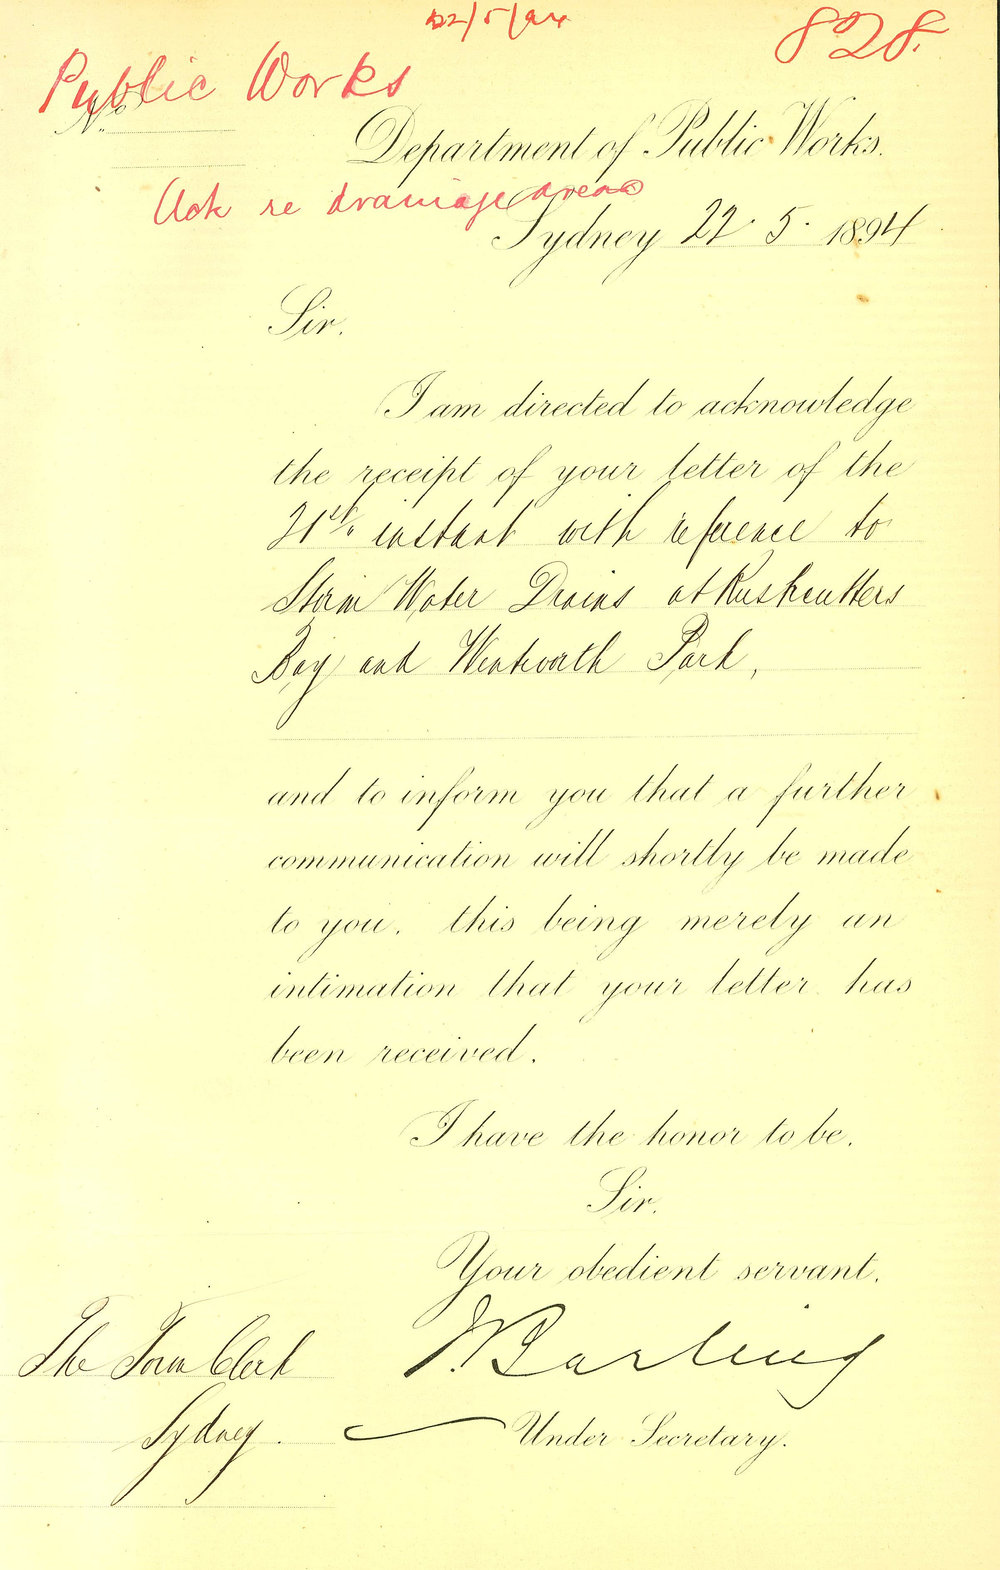 22/5/94
828.
Public Works
No.
Department of Public Works.
Ack re drainage areas
Sydney 22. 5. 1894
Sir.
I am directed to acknowledge
the receipt of your letter of the
21st. instant with reference to
Storm Water Drains at Rushcutters
Bay and Wentworth Park,
and to inform you that a further
communication will shortly be made
to you. this being merely an
intimation that your letter has
been received.
I have the honor to be.
Sir.
Your obedient servant.
J Barling
The Town Clerk
Sydney.
Under Secretary.